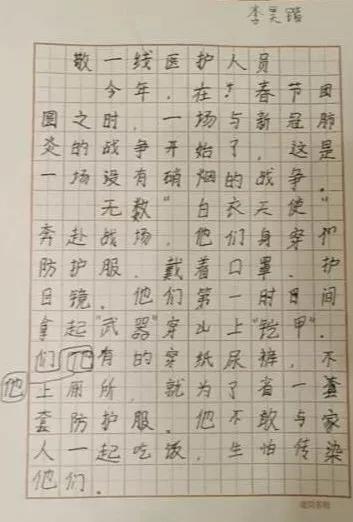 李昊蹈
敬一线医护人员
今年,在春节团
圆之时,一场与新冠肺
炎的战争开始了,这是
一场没有硝烟的战争.
无数"白衣天使"
奔赴战场,他们身穿
防护服,戴着口罩、护
目镜.他们第一时间
拿起"武器"穿上"铠甲".
们他有的穿纸尿裤,不
他
上厕所,就为了省一
套防护服.他不敢与家
人一起吃饭,生怕传染
他们.